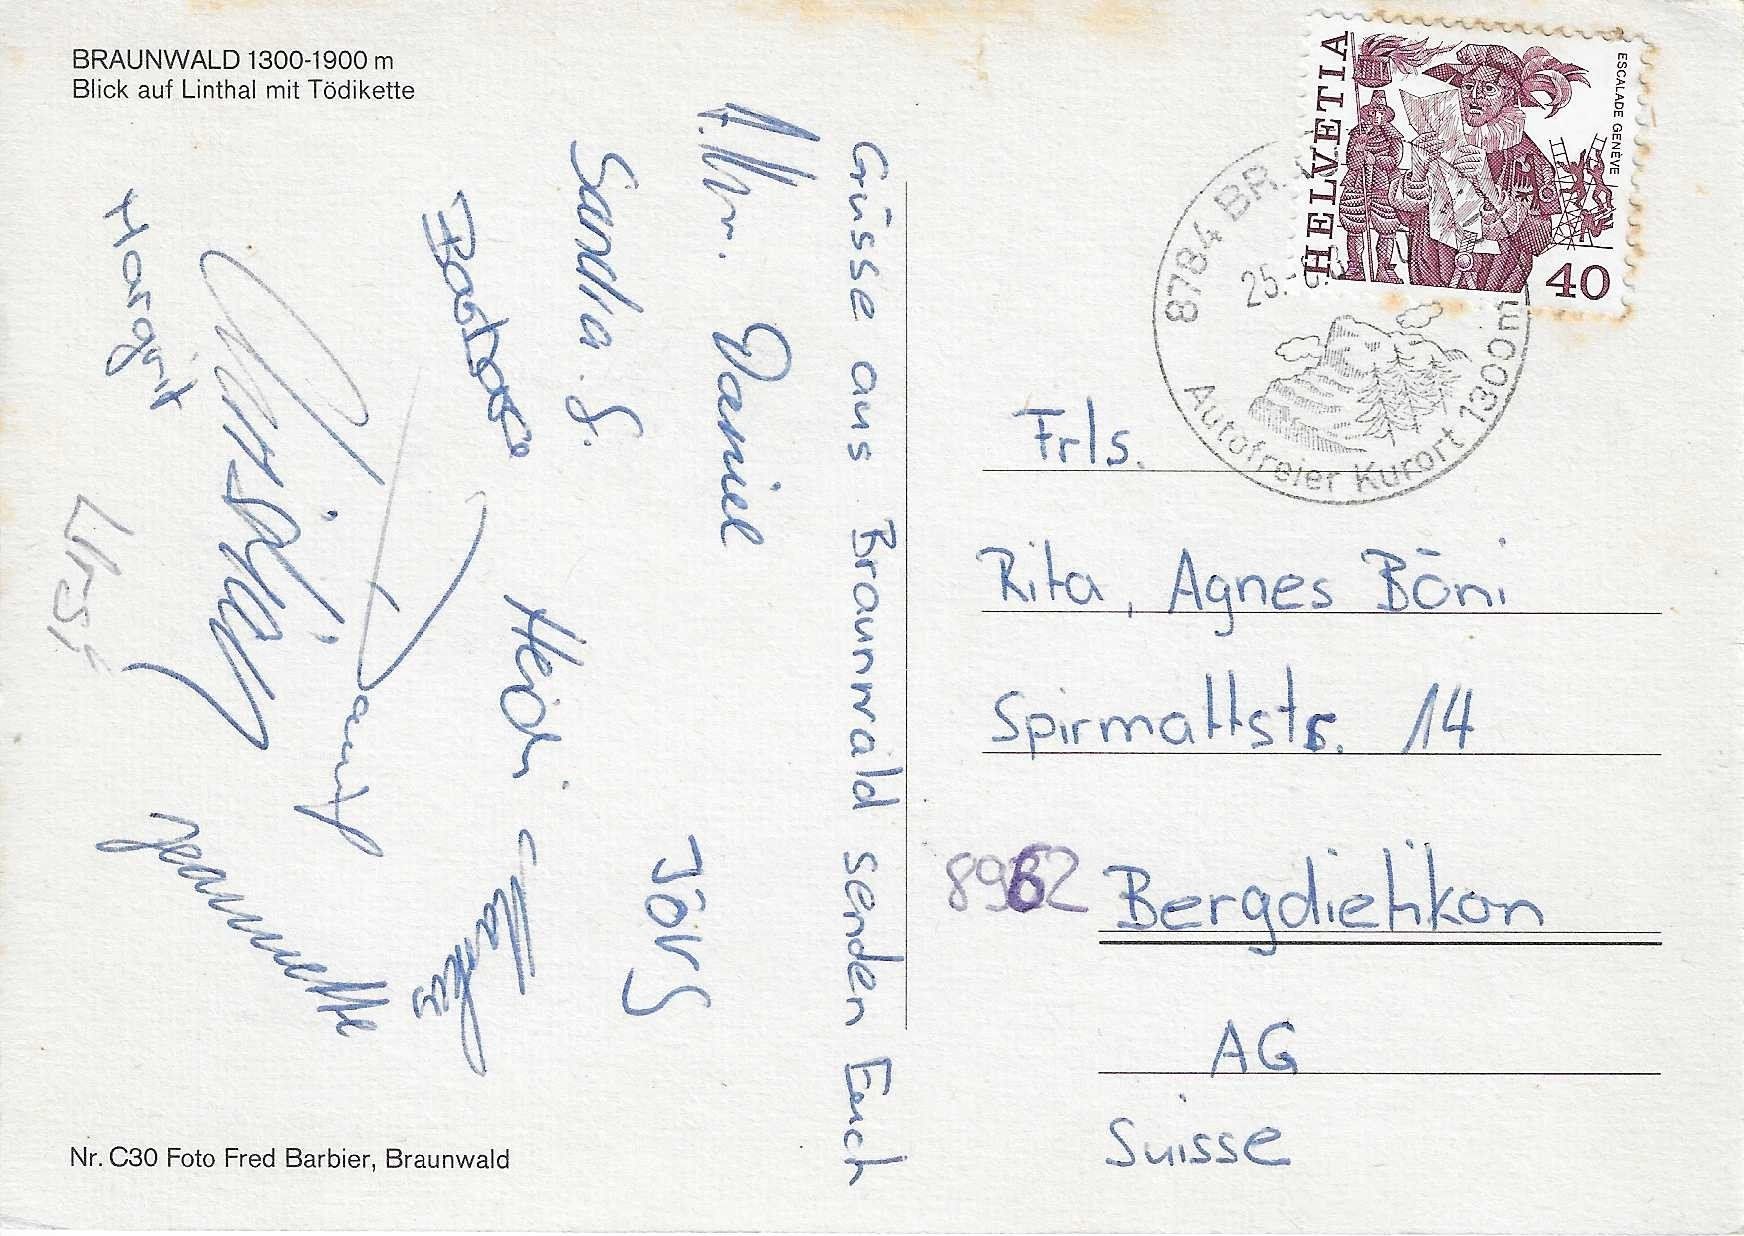 BRAUNWALD 1300-1900 m
Blick auf Linthal mit Tödikette
Grüsse aus Braunwald senden Euch
Daniel
Sandra S.
Jörg
Barbara
Heidi
Christian
Jeannette
Margrit
Ursi
Nr. C30 Foto Fred Barbier, Braunwald
HELVETIA
ESCALADE GENÈVE
40
8784 BR
25.
Autofreier Kurort 1300m
Frls.
Rita, Agnes Böni
Spirmattstr. 14
8962 Bergdietikon
AG
Suisse